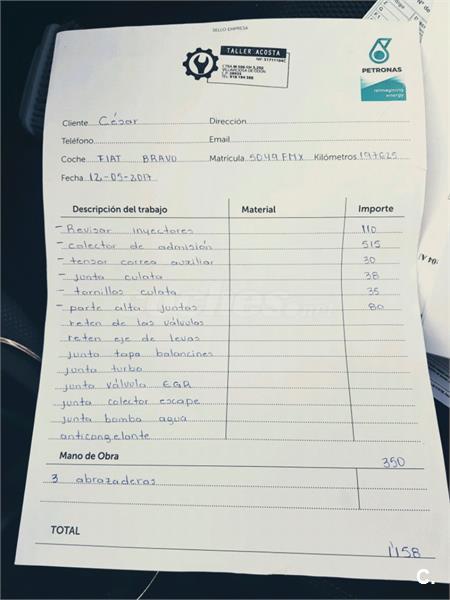 SELLO EMPRESA
TALLER ACOSTA
PETRONAS
reimagining
energy
Cliente César Dirección
Teléfono Email
Coche FIAT BRAVO Matrícula 5049 FMX Kilómetros 197625
Fecha 12-05-2017
Descripción del trabajo Material Importe
- Revisar inyectores 110
- colector de admisión 515
- tensor correa auxiliar 30
- junta culata 38
- tornillos culata 35
- parte alta juntas 80
reten de las válvulas
reten eje de levas
junta tapa balancines
junta turbo
junta válvula EGR
junta colector escape
junta bomba agua
anticongelante
Mano de Obra 350
3 abrazaderas
TOTAL 1'158
C.